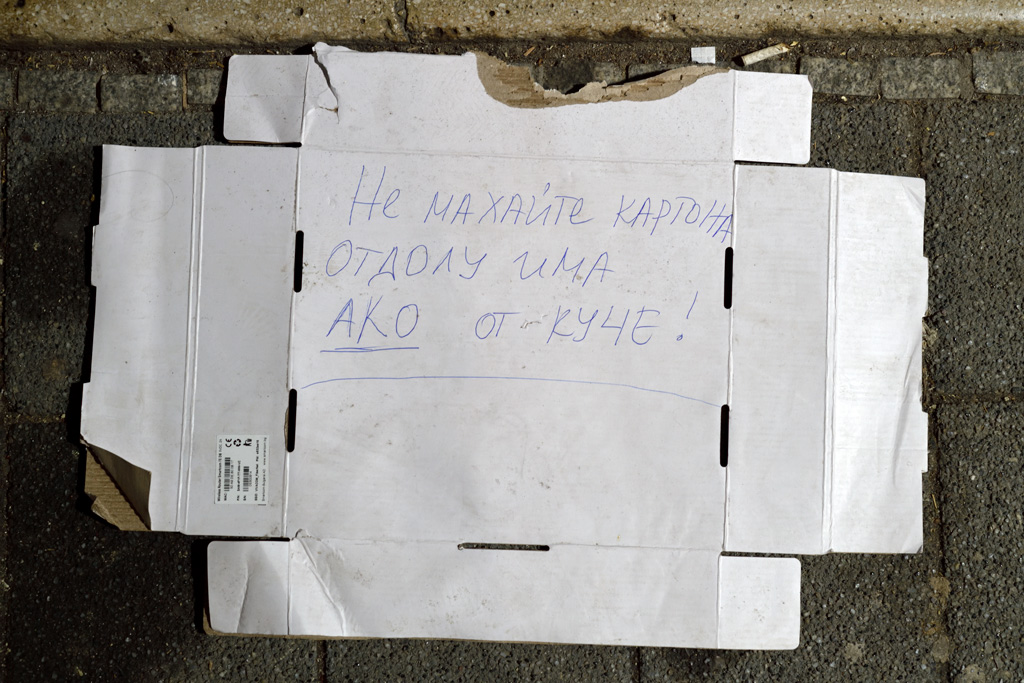 Не МАХАЙТЕ КАРТОНА
ОТДОЛУ ИМА
АКО ОТ КУЧЕ!